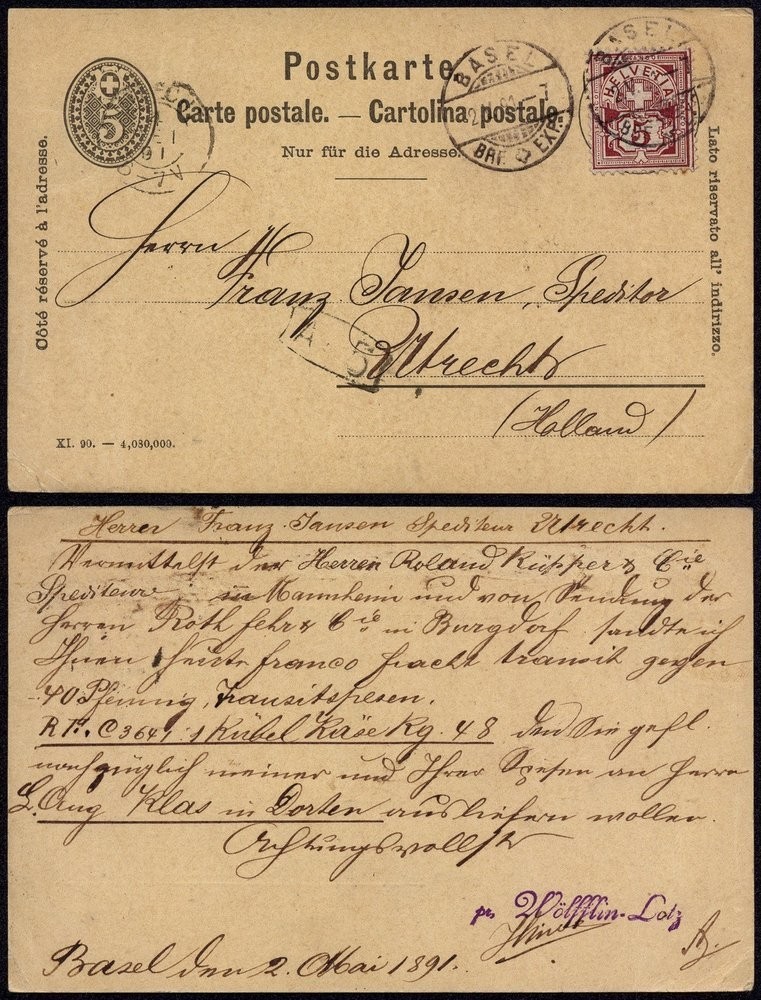 Postkarte.
Carte postale. — Cartolina postale.
Nur für die Adresse.
Côté réservé à l'adresse.
Lato riservato all' indirizzo.
5
91
BASEL
BRF. EXP.
BASEL
HELVETIA
5
Herrn
Franz Jansen, Speditor
Utrecht
(Holland)
XI. 90. — 4,080,000.
Herren Franz Jansen Spediteur Utrecht.
Vermittelst der Herren Roland Küpper & Cie
Spediteure in Mannheim und von Sendung der
Herren Roth fehr & Cie in Burgdorf sandte ich
Ihnen heute franco fracht transit gegen
40 Pfennig, Transitspesen.
C 364, 1 Kübel Käse Kg. 48 den Sie gefl.
nachzüglich meiner und Ihrer Spesen an Herrn
L. Aug Klas in Dorten ausliefern wollen.
Achtungsvollst
pr Wölfflin-Lotz
Basel den 2. Mai 1891.